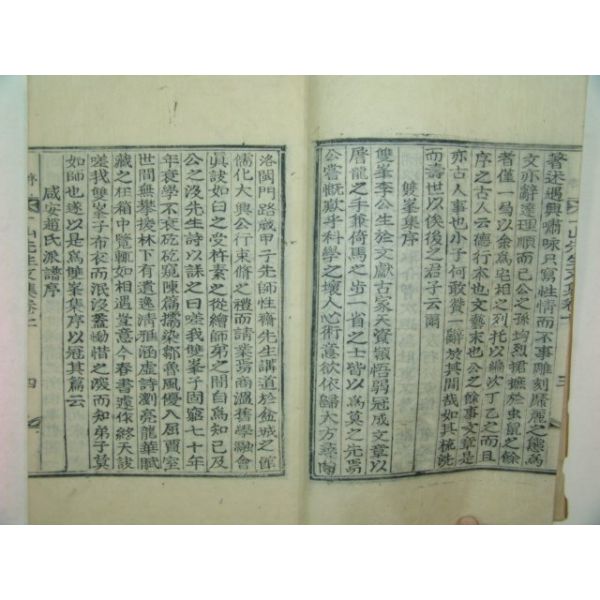 著述遇興嘯咏只寫性情而不事雕刻靡麗之態爲
文亦辭達理順而已公之孫均烈裙摭於虫鼠之餘
者僅一局以余爲宅相之列托以編次丁乙之而且
序之古人云德行本也文藝末也公之餘事文章是
亦古人事也小子何敢贊一辭於其間哉如其梳洗
而壽世以俟後之君子云爾
雙峯集序
雙峯李公生於文獻古家天資穎悟弱冠成文章以
屠龍之手兼倚馬之步一省之士皆以爲莫之先焉
公嘗慨歎乎科學之壞人心術蔫欲依歸大方尋向
洛閩門路歲甲子先師性齋先生講道於盆城之館
儒化大興公行束脩之禮而請業焉商漚舊學融會
眞詇如曰之受朴素之從繪師弟之間自爲知己及
公之沒先生詩以誄之曰嗟我雙峯子固窮七十年
年衰學不衰矻矻窺陳篇擩染鄒魯風優入屈賈室
世間無攀援林下有遺逸淸雅涵虛詩瀏亮龍華賦
藏之在箱中覽輒如相遇豈意今春書遽作終天訣
嗟我雙峯子布衣而泯沒蓋慟惜之深而知弟子莫
如師也遂以是爲雙峯集序以冠其篇云
咸安趙氏派譜序
一山先生文集卷一
三
序
一山先生文集卷一
四